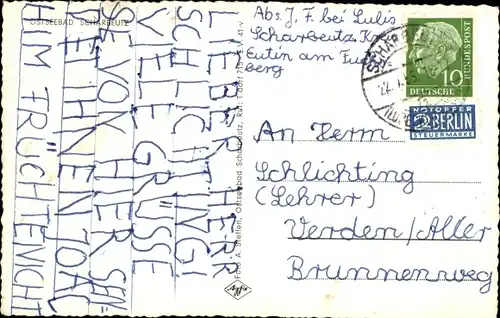 OSTSEEBAD SCHARBEUTZ
LIEBER HERR
SCHLICHTING!
VIELE GRÜSSE
VON HIER SEN
TET IHNEN
HIM FRÜCHTENICHT
Foto A. Steffen, Ostseebad Scharbeutz
Abs. J. F. bei Lulis
Scharbeutz Kr.
Eutin am Fuch
berg
SCHARBEUTZ
10
DEUTSCHE
BUNDESPOST
NOTOPFER
2 BERLIN
STEUERMARKE
An Herrn
Schlichting
(Lehrer)
Verden/Aller
Brunnenweg